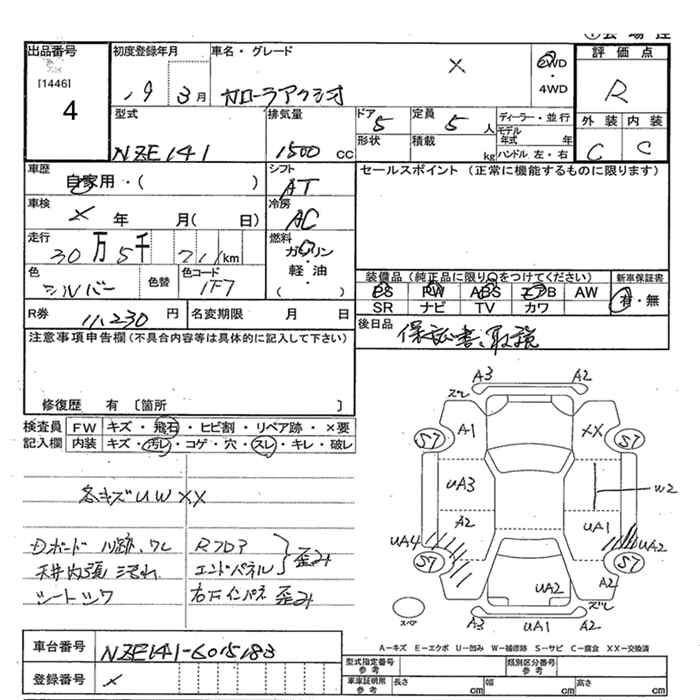 出品番号
[1446]
4
初度登録年月
車名・グレード
19 3月
カローラアクシオ
X
2WD
・
4WD
評価点
R
外装 内装
C C
型式
NZE141
排気量
1500 CC
ドア 5
定員 5 人
形状
積載 kg
ディーラー・並行
モデル年式 年
ハンドル 左・右
車歴
自家用・( )
シフト
AT
セールスポイント (正常に機能するものに限ります)
車検
X 年 月( 日)
冷房
AC
走行
30万5千 211km
燃料
ガソリン
・
軽油
( )
色
シルバー
色替
色コード
1F7
装備品 (純正品に限り○をつけてください)
新車保証書
PS PW ABS エアB AW
SR ナビ TV カワ
有・無
R券 11,230 円
名変期限 月 日
後日品
保証書、取説
注意事項申告欄 (不具合内容等は具体的に記入して下さい)
修復歴 有 〔箇所 〕
検査員
記入欄
FW キズ・飛石・ヒビ割・リペア跡・×要
内装 キズ・汚レ・コゲ・穴・スレ・キレ・破レ
各キズUWXX
Dボード ハリ跡、ワレ
天井内張 汚れ
シートシワ
Rフロア
エンドパネル
歪み
右下インパネ 歪み
A3 A2
ズレ
A1 XX
S7 S7
UA3 W2
A2 UA1
UA4 UA2
S7 S7
UA2 A2
ズレ
A3 UA1 A2
スペア
A－キズ E－エクボ U－凹み W－補修跡 S－サビ C－腐食 XX－交換済
車台番号
NZE141-6015183
登録番号
X
型式指定番号
参考
類別区分番号
参考
車庫証明用
参考
長さ cm
幅 cm
高さ cm